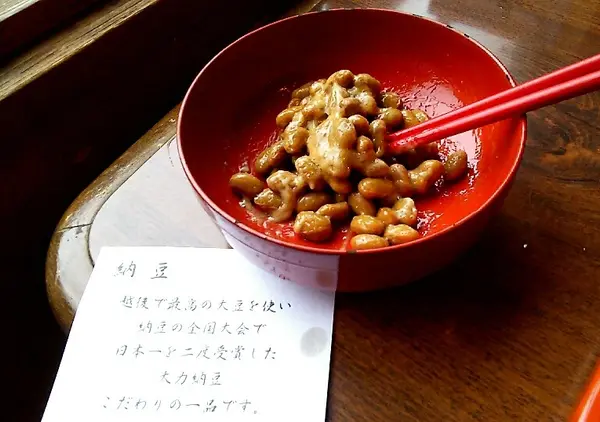 納豆
越後で最高の大豆を使い
納豆の全国大会で
日本一を二度受賞した
大力納豆
こだわりの一品です。